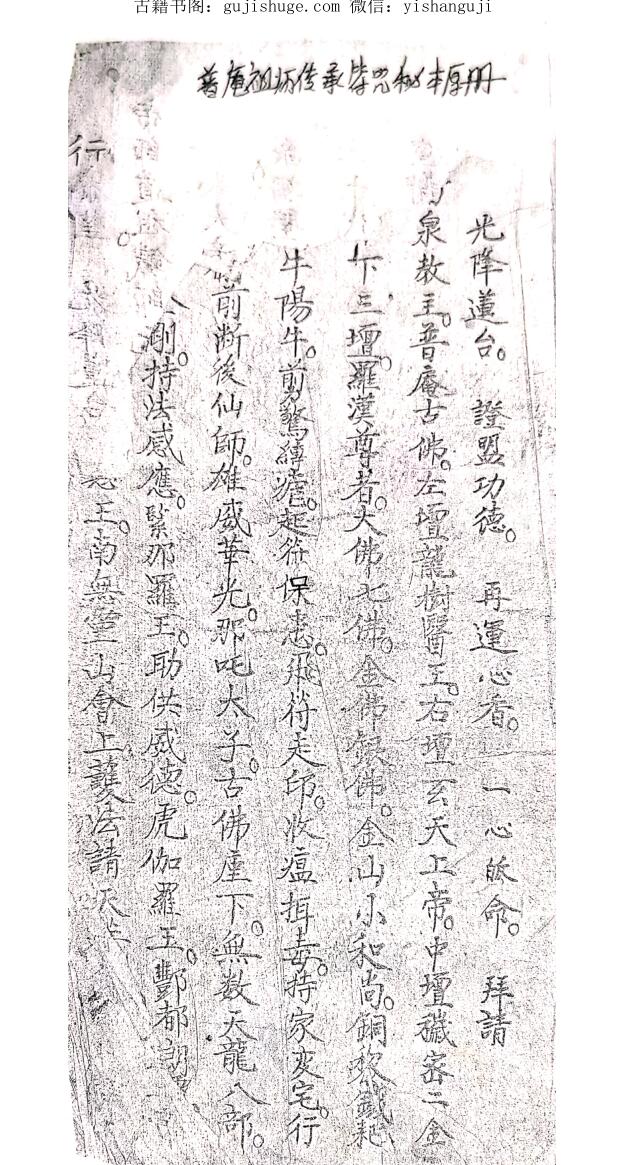 古籍书阁：gujishuge.com 微信：yishanguji
普庵祖坊传承 秘本原册
光降蓮台。 證盟功德。 再運心香。 一心皈命。 拜請
泉教主。普庵古佛。左壇龍樹醫王。右壇玄天上帝。中壇穢密二金
下三壇。羅漢尊者。大佛七佛。金佛銀佛。金山小和尚。銅 鐵
牛陽牛。剪驚縛 。起符保患。飛符走印。收瘟押毒。持家变宅。行
前断後仙師。雄威華光。那吒太子。古佛座下。無数天龍八部。
剛。持法感應。緊那羅王。助供威德。虎伽羅王。酆都
王。南無靈山會上護法請天
行